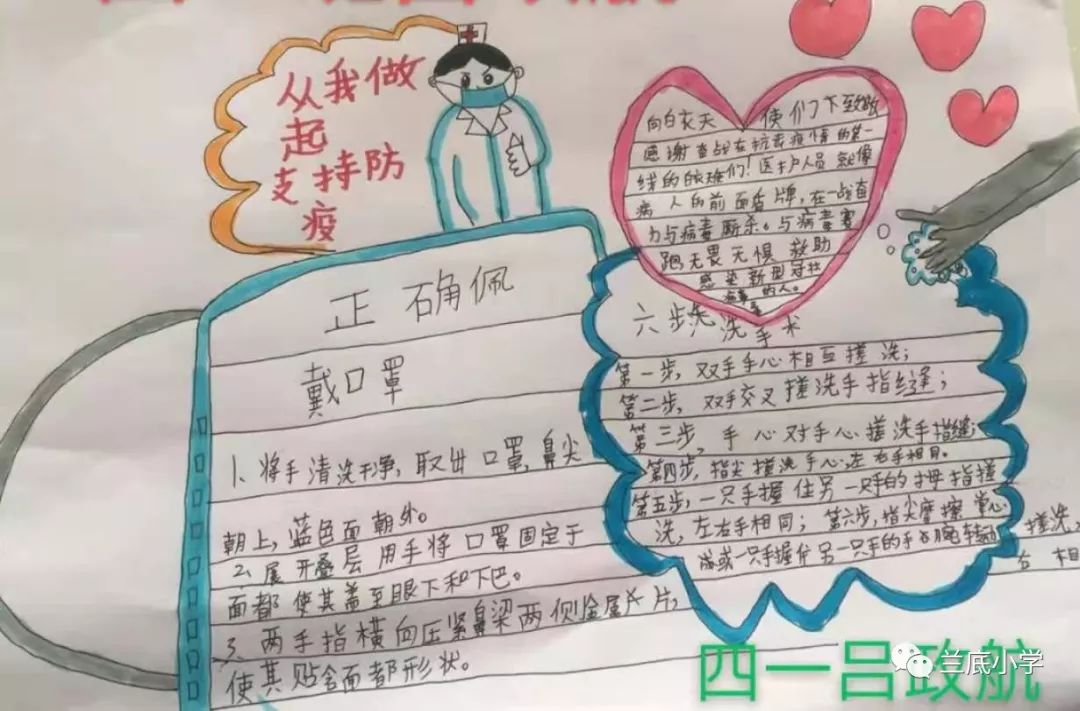 从我做
起
支持防
疫
向白衣天使们下致敬
感谢奋战在抗击疫情的第一
线的医护们！医护人员就像
病人的前面盾牌，在一战直
力与病毒厮杀。与病毒赛
跑无畏无惧救助
感染新型冠状
病毒的人。
正确佩
戴口罩
1、将手清洗干净，取出口罩，鼻尖
朝上，蓝色面朝外。
2、展开叠层用手将口罩固定于
面部使其盖至眼下和下巴。
3、两手指横向压紧鼻梁两侧金属片，
使其贴合面部形状。
六步洗洗手术
第一步，双手手心相互搓洗；
第二步，双手交叉搓洗手指缝；
第三步，手心对手心搓洗手指缝
第四步，指尖搓洗手心左右手相同。
第五步，一只手握住另一只手的拇指搓
洗，左右手相同；第六步，指尖摩擦掌心
或一只手握住另一只手的手腕转动搓洗
右相
四一吕政航
兰底小学